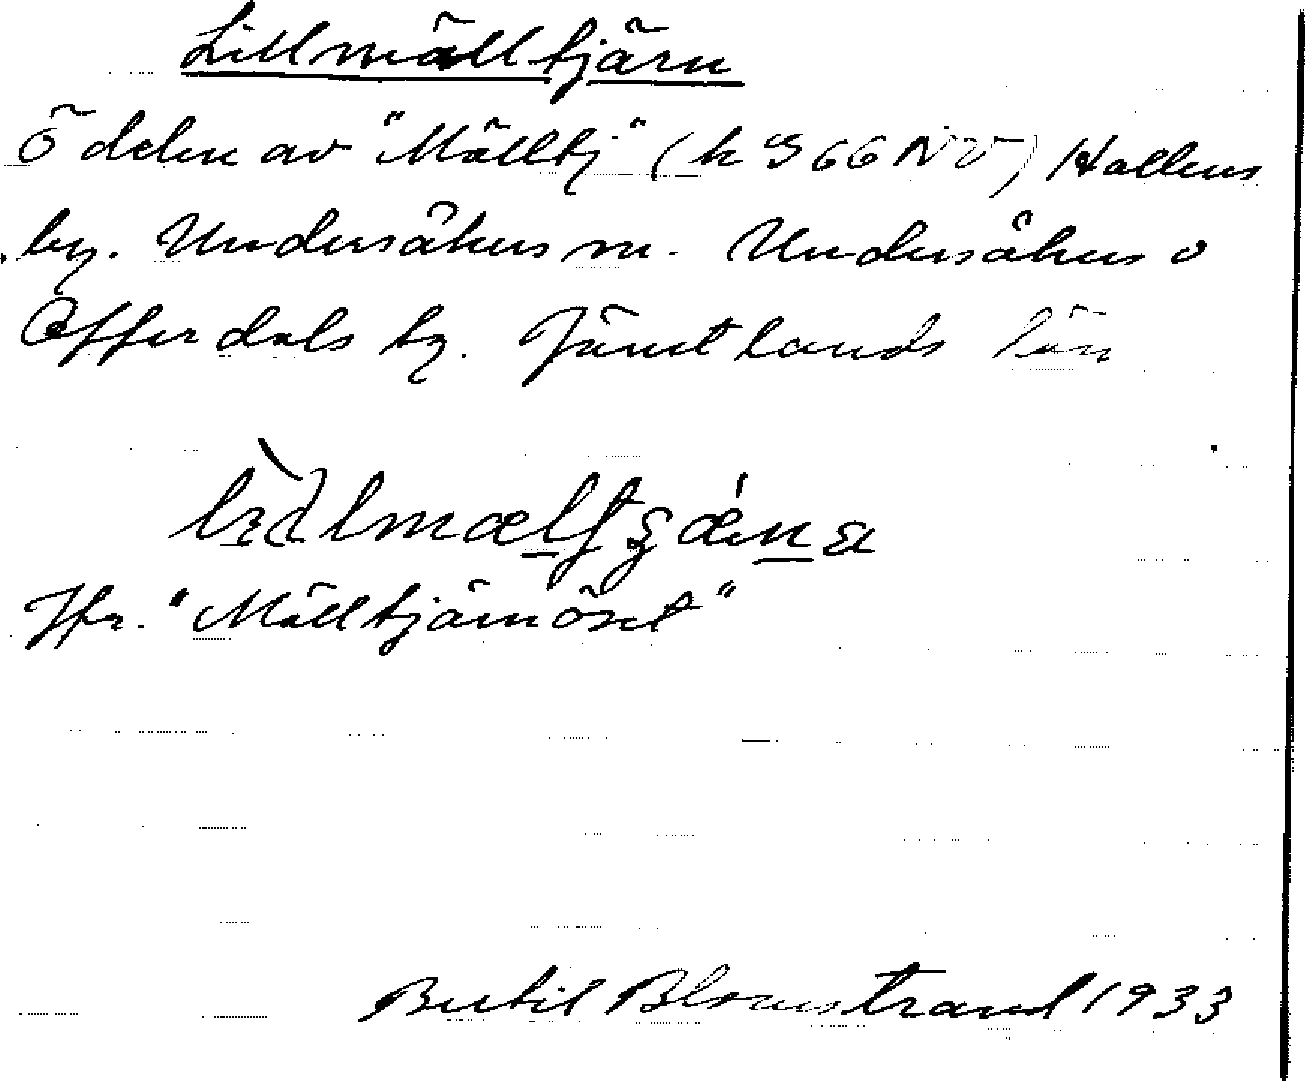 Lillmälltjärn
ö delen av "Mälltj" (k S 66 NV) Hallens
by. Undersåkers m. Undersåkers o
Offerdals tg. Jämtlands län
Jfr. "Mälltjärnöset"
Bertil Blomstrand 1933